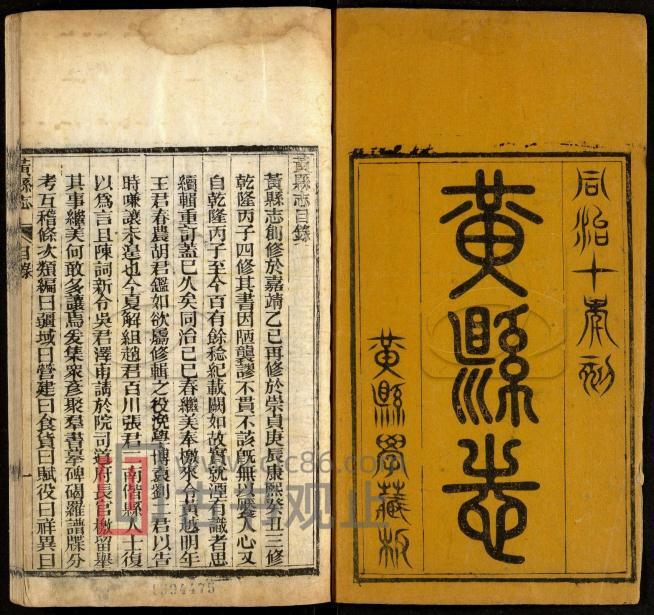 同治十年刻
黃縣志
黃縣學藏板
黃縣志目錄
黃縣志創修於嘉靖乙巳再修於崇貞庚辰康熙癸丑三修
乾隆丙子四修其書因陋襲謬不貫不該旣無以饜人心又
自乾隆丙子至今百有餘稔紀載闕如故實就湮有識者思
續輯重訂蓋已久矣同治己巳春繼美奉檄來令黃越明年
王君春農胡君鑑如欲屬修輯之役浼學博袁劉二君以告
時嗛讓未遑也今夏解組趙君百川張君二南偕縣人士復
以爲言且陳詞新令吳君澤甫請於院司道府長官檄留舉
其事繼美何敢多讓焉爰集衆彥聚羣書摹碑碣羅譜牒分
考互稽條次類編曰疆域曰營建曰食貨曰賦役曰祥異曰
黃縣志
目錄
一
cjc86.com
古书观止
1694475